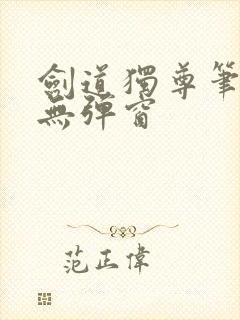 劍道獨尊筆
無彈窗
范正偉